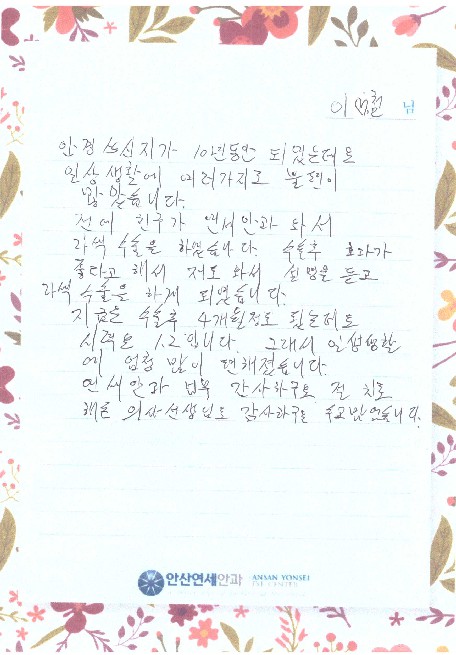 이 님
안경 쓰신지가 10년동안 되였는데도
일상생활에 여러가지로 불편이
많았습니다.
전에 친구가 연세안과 와서
라섹 수술을 하였습니다. 수술후 효과가
좋다고 해서 저도 와서 설명을 듣고
라섹 수술을 하게 되였습니다.
지금은 수술후 4개월정도 됬는데도
시력은 1.2 입니다. 그래서 일상생활
에 엄청 많이 편해졌습니다.
연세안과 너무 감사하구요 절 치료
해준 의사선생님도 감사하구요 수고많았습니다.
안산연세안과 ANSAN YONSEI
EYE CENTER